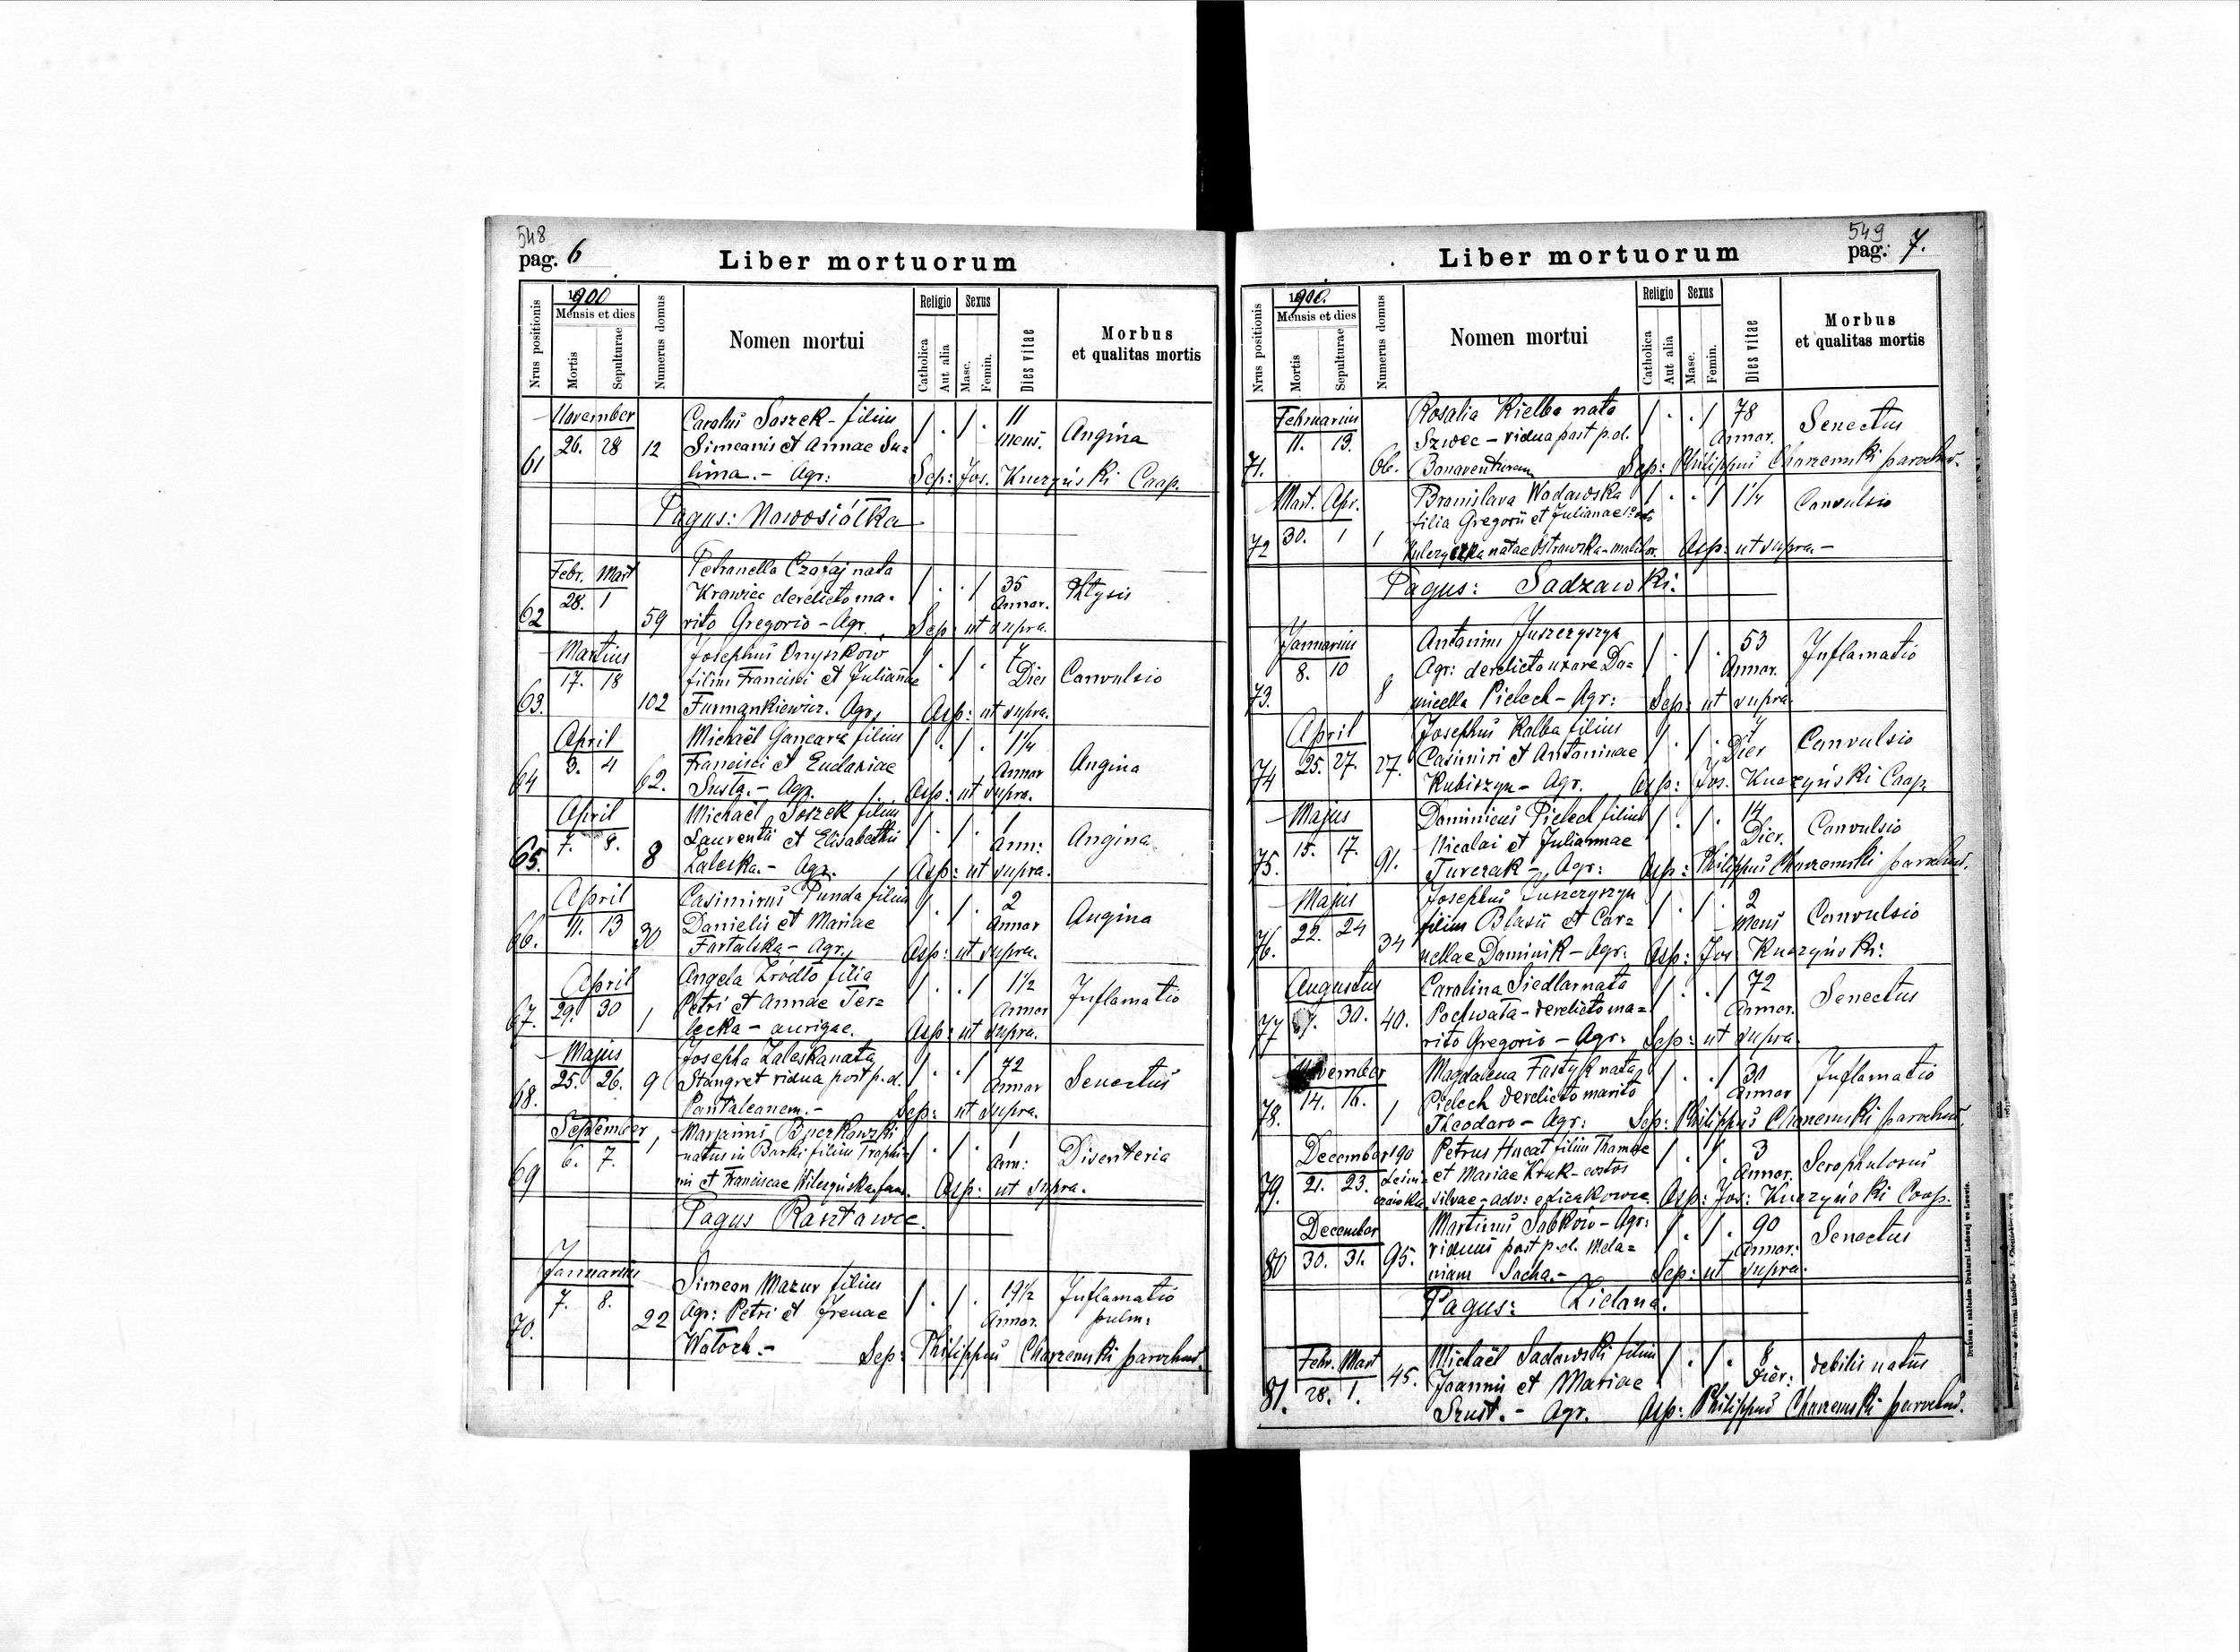 548
pag. 6
Liber mortuorum
Nrus positionis
1900
Mensis et dies
Mortis
Sepulturae
Numerus domus
Nomen mortui
Religio
Catholica
Aut alia
Sexus
Masc.
Femin.
Dies vitae
Morbus
et qualitas mortis
November
61 26. 28 12
Carolus Soszek - filius
Simeonis et Annae Su=
lima. - Agr:
11
mens.
Angina
Sep: Jos. Kuczyński Coop.
Pagus: Nowosiółka
Febr. Mart
62 28. 1 59
Petronella Czafaj nata
Krawiec derelicto ma-
rito Gregorio - Agr.
35
Annor.
Phtysis
Sep: ut supra.
Martius
63. 17. 18 102
Josephus Onyszkow
filius Francisci et Julianae
Furmankiewicz. Agr.
Dies
Convulsio
Asp: ut supra.
April
64 3. 4 62.
Michaël Gancarz filius
Francisci et Eudoxiae
Susta. - Agr.
1 1/4
Annor
Angina
Asp: ut supra.
April
65. 7. 8. 8
Michaël Soszek filius
Laurentii et Elisabethis
Zaleska. - Agr.
1
Ann:
Angina
Asp: ut supra.
April
66. 11. 13 30
Casimirus Punda filius
Danielis et Mariae
Fartuszka - Agr.
2
Annor
Angina
Asp: ut supra.
April
67. 29. 30 1
Angela Źródło filia
Petri et Annae Ter=
lecka - aurigae.
1 1/2
Annor
Inflamatio
Asp: ut supra.
Majus
68. 25. 26. 9
Josepha Zaleska nata
Stangret vidua post p. d.
Pantaleonem. -
72
Annor
Senectus
Sep: ut supra.
September
69 6. 7. 1
Marjanus Buczkowski
natus in Borki filius Trophi-
mi et Franciscae Wilczyńska fam.
1
Ann:
Disenteria
Asp: ut supra.
Pagus Rasztawce.
Januarius
70. 7. 8. 22
Simeon Mazur filius
Agr: Petri et Irenae
Wołoch. -
19 1/2
Annor.
Inflamatio
pulm:
Sep: Philippus Charzemski parochus.
549
pag: 7.
Liber mortuorum
Nrus positionis
1900.
Mensis et dies
Mortis
Sepulturae
Numerus domus
Nomen mortui
Religio
Catholica
Aut alia
Sexus
Masc.
Femin.
Dies vitae
Morbus
et qualitas mortis
Februarius
71. 11. 13. 66.
Rosalia Kielbo nata
Szwec - vidua post p. d.
Bonaventuram
78
Annor.
Senectus
Sep: Philippus Charzemski parochus.
Mart. Apr.
72 30. 1 1
Bronislava Wodawska
filia Gregorii et Julianae
natae Ostrowska -
1 1/4
Convulsio
Asp: ut supra. -
Pagus: Sadzawki.
Januarius
73. 8. 10 8
Antonius Juszczyszyn
Agr: derelicto uxore Do=
micella Pielech - Agr:
53
Annor.
Inflamatio
Sep: ut supra
April
74 25. 27. 27.
Josephus Kalba filius
Casimiri et Antoninae
Kubiszyn - Agr.
Dies
Convulsio
Asp: Jos. Kuczyński Coop
Majus
75. 15. 17. 91.
Dominicus Pielech filius
Nicolai et Juliannae
Turczak - Agr:
14
Dier.
Convulsio
Asp: Philippus Charzemski parochus.
Majus
76. 22. 24 34
Josephus Juszczyszyn
filius Blasii et Cor=
nellae Dominik - Agr.
2
Mens
Convulsio
Asp: Jos Kuczyński.
Augustus
77 30. 40.
Carolina Siedlar nata
Pochwata - derelicto ma=
rito Gregorio - Agr:
72
Annor.
Senectus
Sep: ut supra
November
78. 14. 16. 1
Magdalena Fostyk nata
Pielech derelicto marito
Theodoro - Agr:
30
Annor
Inflamatio
Sep: Philippus Charzemski parochus.
December 190
79. 21. 23.
Petrus Hucat filius Thomae
et Mariae Kruk - custos
silvae - adv: e Lizakowce.
3
Annor.
Scrophulosus
Asp: Jos: Kuczyński Coop.
December
80 30. 31. 95.
Martinus Sabków - Agr:
viduus post p. d. Mela=
niam Socha. -
90
Annor.
Senectus
Sep: ut supra.
Pagus: Zielona.
Febr. Mart
81. 28. 1. 45.
Michaël Sadowski filius
Joannis et Mariae
Szust. - Agr.
8
Dier:
debilis natus
Asp: Philippus Charzemski parochus.
Drukiem i nakładem Drukarni Ludowej we Lwowie.